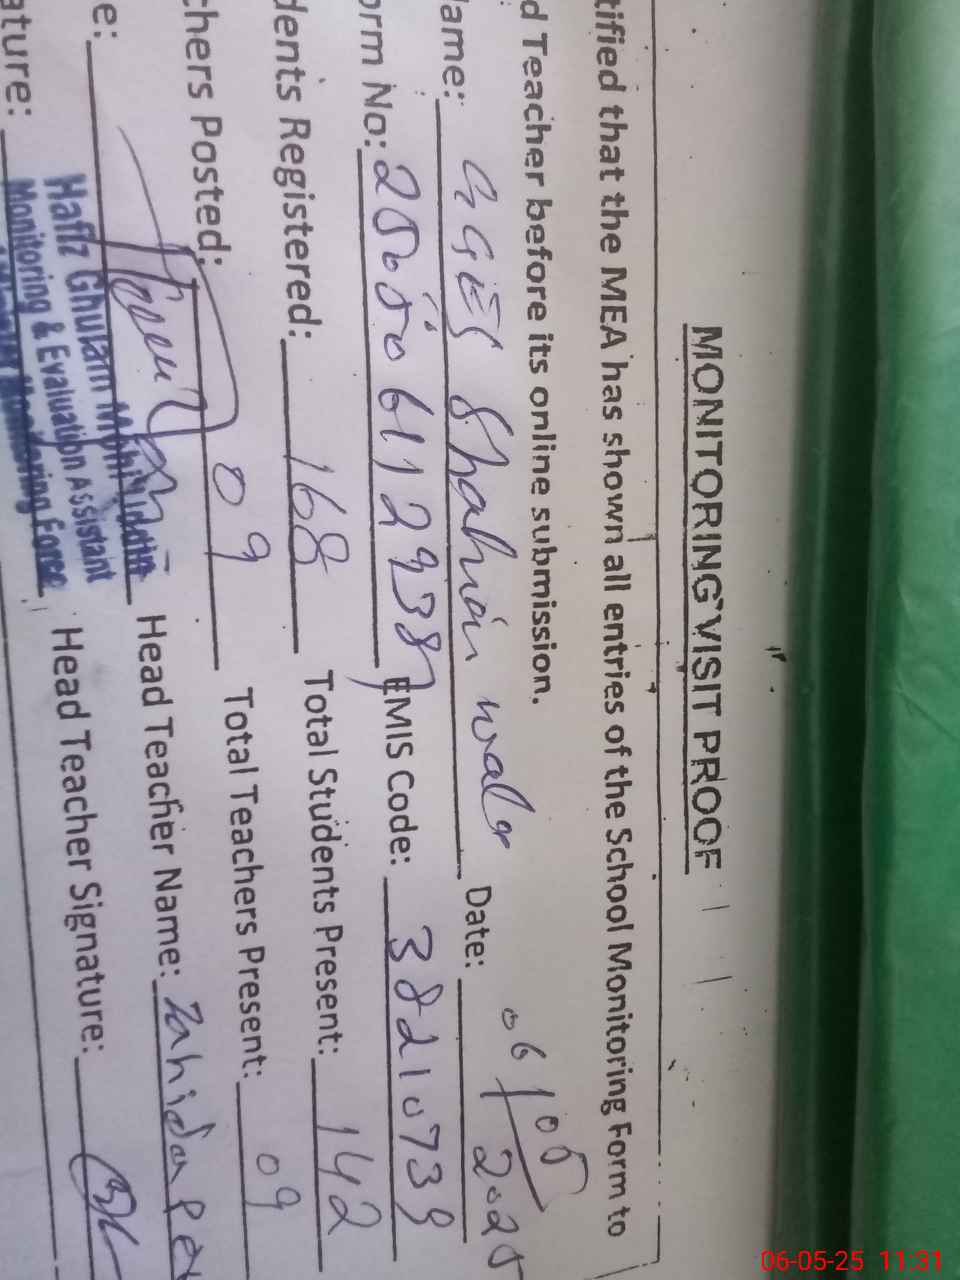 MONITORING VISIT PROOF
tified that the MEA has shown all entries of the School Monitoring Form to
d Teacher before its online submission.
ame: GGES Shahin wala Date: 06/05/2025
orm No: EMIS Code: 38210739
dents Registered: 168 Total Students Present: 142
chers Posted: 09 Total Teachers Present: 09
e: Head Teacher Name: Zahida Pe
Hafiz Ghulam Mohiuddin
Monitoring & Evaluation Assistant
Monitoring Force
ature: Head Teacher Signature:
06-05-25 11:31